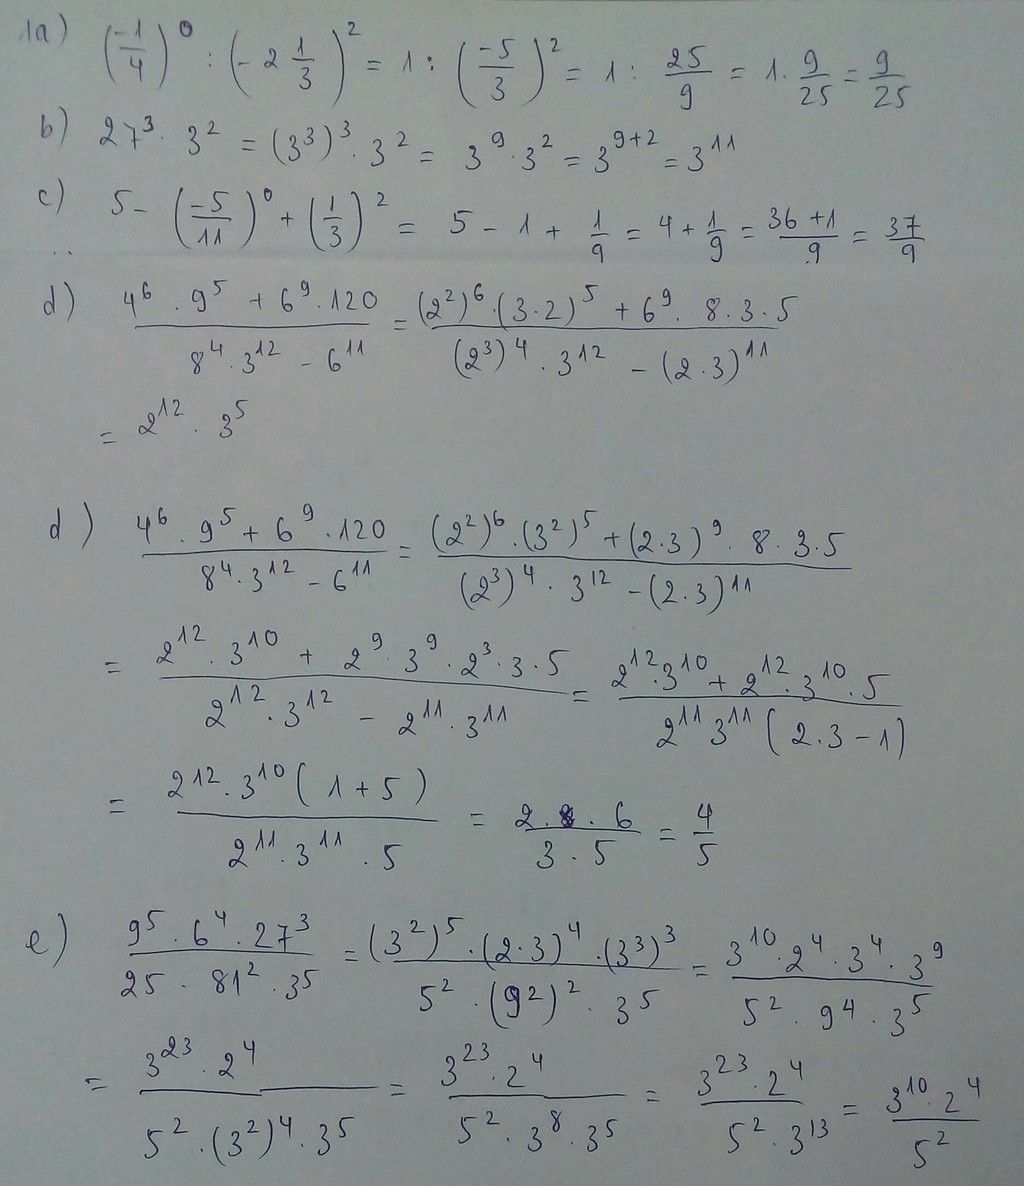 1a) (-1/4)^0 : (-2 1/3)^2 = 1 : (-5/3)^2 = 1 : 25/9 = 1 · 9/25 = 9/25
b) 27^3 · 3^2 = (3^3)^3 · 3^2 = 3^9 · 3^2 = 3^(9+2) = 3^11
c) 5 - (-5/11)^0 + (1/3)^2 = 5 - 1 + 1/9 = 4 + 1/9 = (36 + 1)/9 = 37/9
d) (4^6 · 9^5 + 6^9 · 120)/(8^4 · 3^12 - 6^11) = ((2^2)^6 · (3 · 2)^5 + 6^9 · 8 · 3 · 5)/((2^3)^4 · 3^12 - (2 · 3)^11)
= 2^12 · 3^5
d) (4^6 · 9^5 + 6^9 · 120)/(8^4 · 3^12 - 6^11) = ((2^2)^6 · (3^2)^5 + (2 · 3)^9 · 8 · 3 · 5)/((2^3)^4 · 3^12 - (2 · 3)^11)
= (2^12 · 3^10 + 2^9 · 3^9 · 2^3 · 3 · 5)/(2^12 · 3^12 - 2^11 · 3^11) = (2^12 · 3^10 + 2^12 · 3^10 · 5)/(2^11 3^11 (2 · 3 - 1))
= (2^12 · 3^10 (1 + 5))/(2^11 · 3^11 · 5) = (2 · 6)/(3 · 5) = 4/5
e) (9^5 · 6^4 · 27^3)/(25 · 81^2 · 3^5) = ((3^2)^5 · (2 · 3)^4 · (3^3)^3)/(5^2 · (9^2)^2 · 3^5) = (3^10 · 2^4 · 3^4 · 3^9)/(5^2 · 9^4 · 3^5)
= (3^23 · 2^4)/(5^2 · (3^2)^4 · 3^5) = (3^23 · 2^4)/(5^2 · 3^8 · 3^5) = (3^23 · 2^4)/(5^2 · 3^13) = (3^10 · 2^4)/5^2